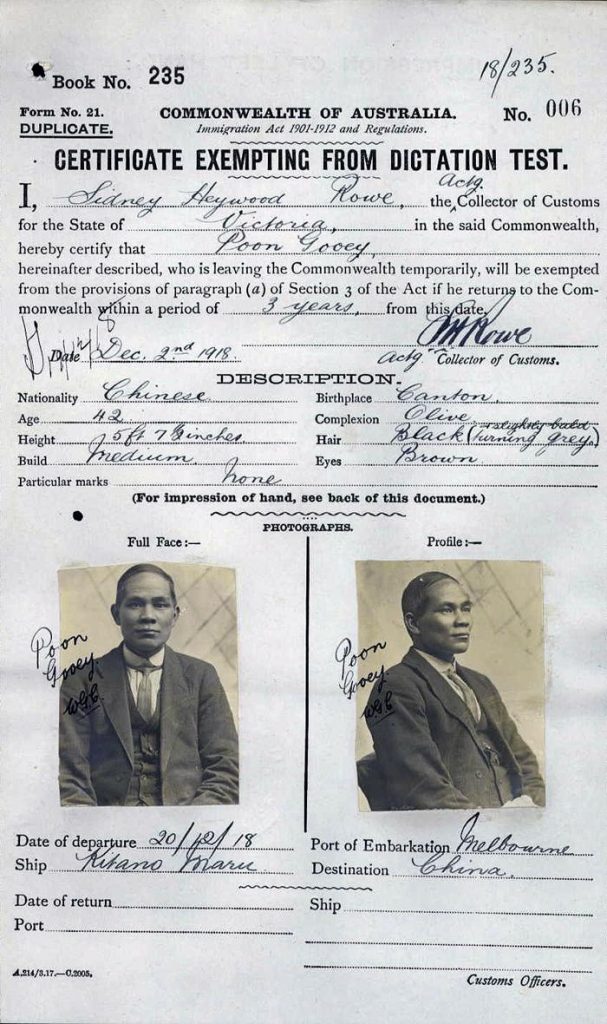 18/235.
Book No. 235
Form No. 21. COMMONWEALTH OF AUSTRALIA. No. 006
DUPLICATE. Immigration Act 1901-1912 and Regulations.
CERTIFICATE EXEMPTING FROM DICTATION TEST.
I, Sidney Heywood Rowe, the Actg. Collector of Customs
for the State of Victoria, in the said Commonwealth,
hereby certify that Poon Gooey,
hereinafter described, who is leaving the Commonwealth temporarily, will be exempted
from the provisions of paragraph (a) of Section 3 of the Act if he returns to the Com-
monwealth within a period of 3 years, from this date.
Rowe
Date Dec. 2nd 1918. Actg Collector of Customs.
DESCRIPTION.
Nationality Chinese Birthplace Canton.
Age 42 Complexion Olive
Height 5ft 7 inches Hair Black (turning grey) slightly bald
Build Medium Eyes Brown
Particular marks None
(For impression of hand, see back of this document.)
PHOTOGRAPHS.
Full Face:— Profile:—
Poon Poon
Gooey Gooey
W.G.C W.G.C
Date of departure 20/12/18 Port of Embarkation Melbourne
Ship Kitano Maru Destination China.
Date of return Ship
Port
A.214/3.17.—C.2005. Customs Officers.